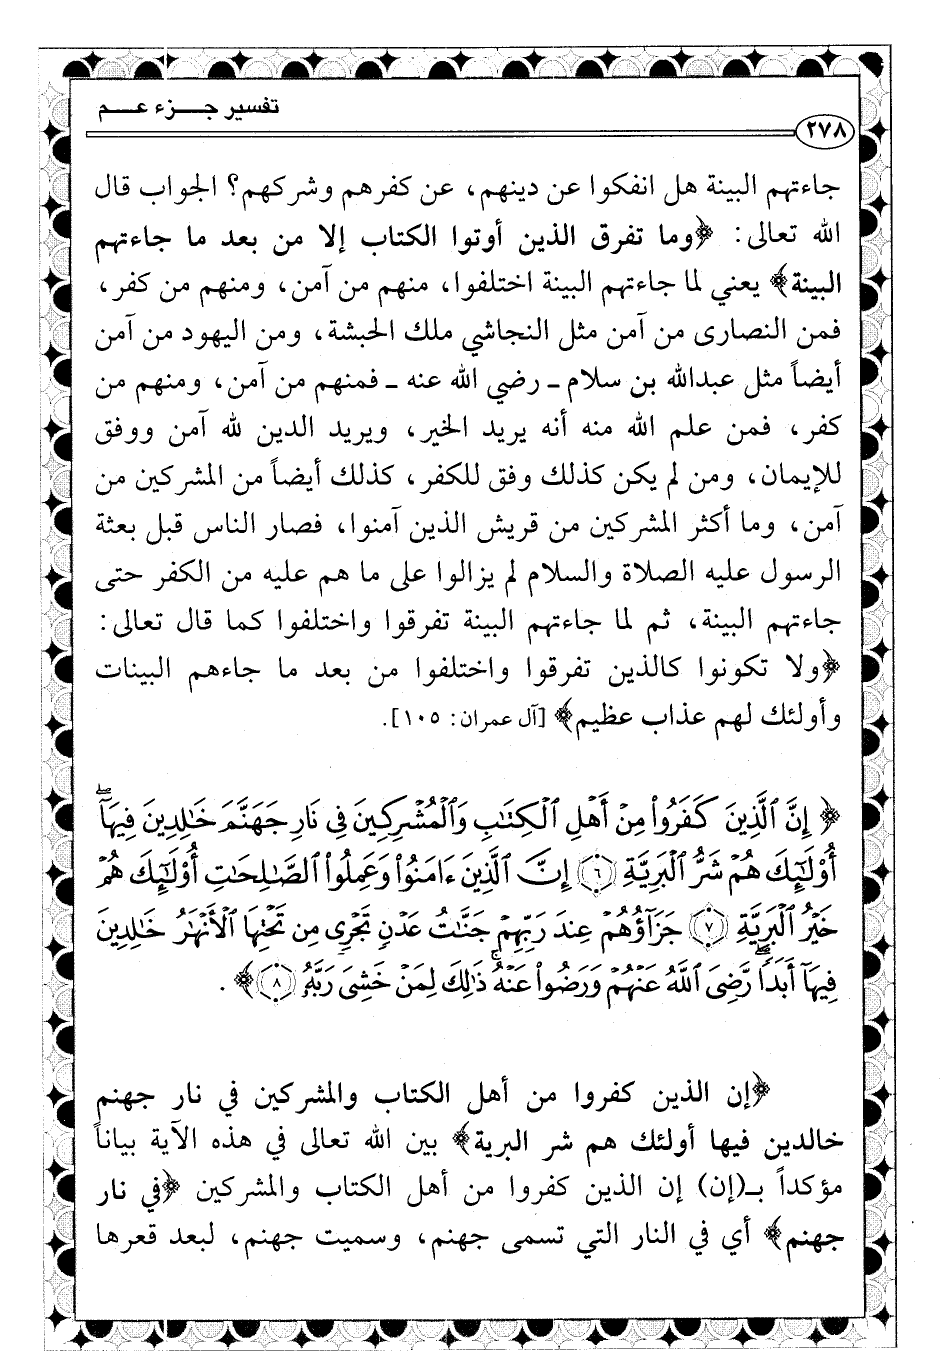 تفسير جـــزء عـــم
٢٧٨
جاءتهم البينة هل انفكوا عن دينهم، عن كفرهم وشركهم؟ الجواب قال
الله تعالى: ﴿وما تفرق الذين أوتوا الكتاب إلا من بعد ما جاءتهم
البينة﴾ يعني لما جاءتهم البينة اختلفوا، منهم من آمن، ومنهم من كفر،
فمن النصارى من آمن مثل النجاشي ملك الحبشة، ومن اليهود من آمن
أيضاً مثل عبدالله بن سلام ـ رضي الله عنه ـ فمنهم من آمن، ومنهم من
كفر، فمن علم الله منه أنه يريد الخير، ويريد الدين لله آمن ووفق
للإيمان، ومن لم يكن كذلك وفق للكفر، كذلك أيضاً من المشركين من
آمن، وما أكثر المشركين من قريش الذين آمنوا، فصار الناس قبل بعثة
الرسول عليه الصلاة والسلام لم يزالوا على ما هم عليه من الكفر حتى
جاءتهم البينة، ثم لما جاءتهم البينة تفرقوا واختلفوا كما قال تعالى:
﴿ولا تكونوا كالذين تفرقوا واختلفوا من بعد ما جاءهم البينات
وأولئك لهم عذاب عظيم﴾ [آل عمران: ١٠٥].
﴿إِنَّ ٱلَّذِينَ كَفَرُواْ مِنْ أَهْلِ ٱلْكِتَٰبِ وَٱلْمُشْرِكِينَ فِى نَارِ جَهَنَّمَ خَٰلِدِينَ فِيهَآۚ
أُوْلَٰٓئِكَ هُمْ شَرُّ ٱلْبَرِيَّةِ ٦ إِنَّ ٱلَّذِينَ ءَامَنُواْ وَعَمِلُواْ ٱلصَّٰلِحَٰتِ أُوْلَٰٓئِكَ هُمْ
خَيْرُ ٱلْبَرِيَّةِ ٧ جَزَآؤُهُمْ عِندَ رَبِّهِمْ جَنَّٰتُ عَدْنٍ تَجْرِى مِن تَحْتِهَا ٱلْأَنْهَٰرُ خَٰلِدِينَ
فِيهَآ أَبَدًاۖ رَّضِىَ ٱللَّهُ عَنْهُمْ وَرَضُواْ عَنْهُۚ ذَٰلِكَ لِمَنْ خَشِىَ رَبَّهُۥ ٨﴾.
﴿إن الذين كفروا من أهل الكتاب والمشركين في نار جهنم
خالدين فيها أولئك هم شر البرية﴾ بين الله تعالى في هذه الآية بياناً
مؤكداً بـ(إن) إن الذين كفروا من أهل الكتاب والمشركين ﴿في نار
جهنم﴾ أي في النار التي تسمى جهنم، وسميت جهنم، لبعد قعرها